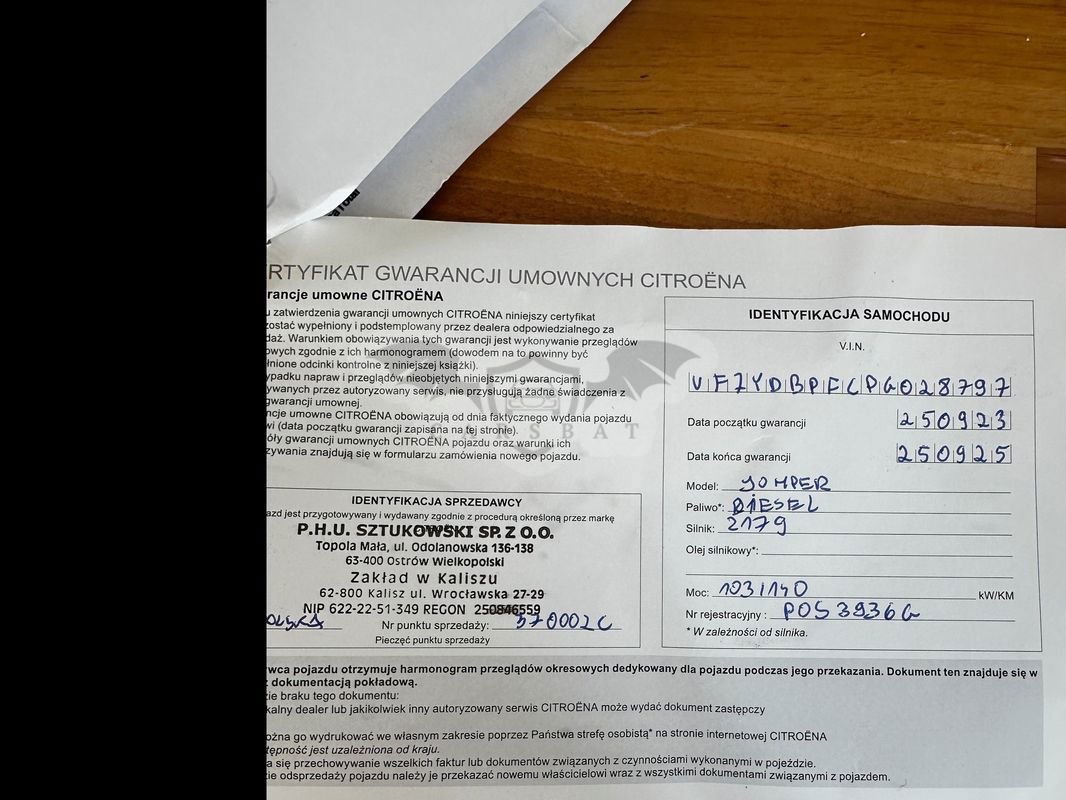 RTYFIKAT GWARANCJI UMOWNYCH CITROËNA
rancje umowne CITROËNA
u zatwierdzenia gwarancji umownych CITROËNA niniejszy certyfikat
zostać wypełniony i podstemplowany przez dealera odpowiedzialnego za
daż. Warunkiem obowiązywania tych gwarancji jest wykonywanie przeglądów
owych zgodnie z ich harmonogramem (dowodem na to powinny być
łnione odcinki kontrolne z niniejszej książki).
ypadku napraw i przeglądów nieobjętych niniejszymi gwarancjami,
ywanych przez autoryzowany serwis, nie przysługują żadne świadczenia z
gwarancji umownej.
ncje umowne CITROËNA obowiązują od dnia faktycznego wydania pojazdu
wi (data początku gwarancji zapisana na tej stronie).
óły gwarancji umownych CITROËNA pojazdu oraz warunki ich
zywania znajdują się w formularzu zamówienia nowego pojazdu.
PARSBAT
IDENTYFIKACJA SPRZEDAWCY
azd jest przygotowywany i wydawany zgodnie z procedurą określoną przez markę
P.H.U. SZTUKOWSKI SP. Z O.O.
Topola Mała, ul. Odolanowska 136-138
63-400 Ostrów Wielkopolski
Zakład w Kaliszu
62-800 Kalisz ul. Wrocławska 27-29
NIP 622-22-51-349 REGON 250846559
Nr punktu sprzedaży: 370002C
Pieczęć punktu sprzedaży
IDENTYFIKACJA SAMOCHODU
V.I.N.
VF7YDBPFCPG028797
Data początku gwarancji 250923
Data końca gwarancji 250925
Model: JUMPER
Paliwo*: DIESEL
Silnik: 2179
Olej silnikowy*:
Moc: 103/140 kW/KM
Nr rejestracyjny : POS3936G
* W zależności od silnika.
wca pojazdu otrzymuje harmonogram przeglądów okresowych dedykowany dla pojazdu podczas jego przekazania. Dokument ten znajduje się w
z dokumentacją pokładową.
zie braku tego dokumentu:
kalny dealer lub jakikolwiek inny autoryzowany serwis CITROËNA może wydać dokument zastępczy
ożna go wydrukować we własnym zakresie poprzez Państwa strefę osobistą* na stronie internetowej CITROËNA
tępność jest uzależniona od kraju.
a się przechowywanie wszelkich faktur lub dokumentów związanych z czynnościami wykonanymi w pojeździe.
zie odsprzedaży pojazdu należy je przekazać nowemu właścicielowi wraz z wszystkimi dokumentami związanymi z pojazdem.